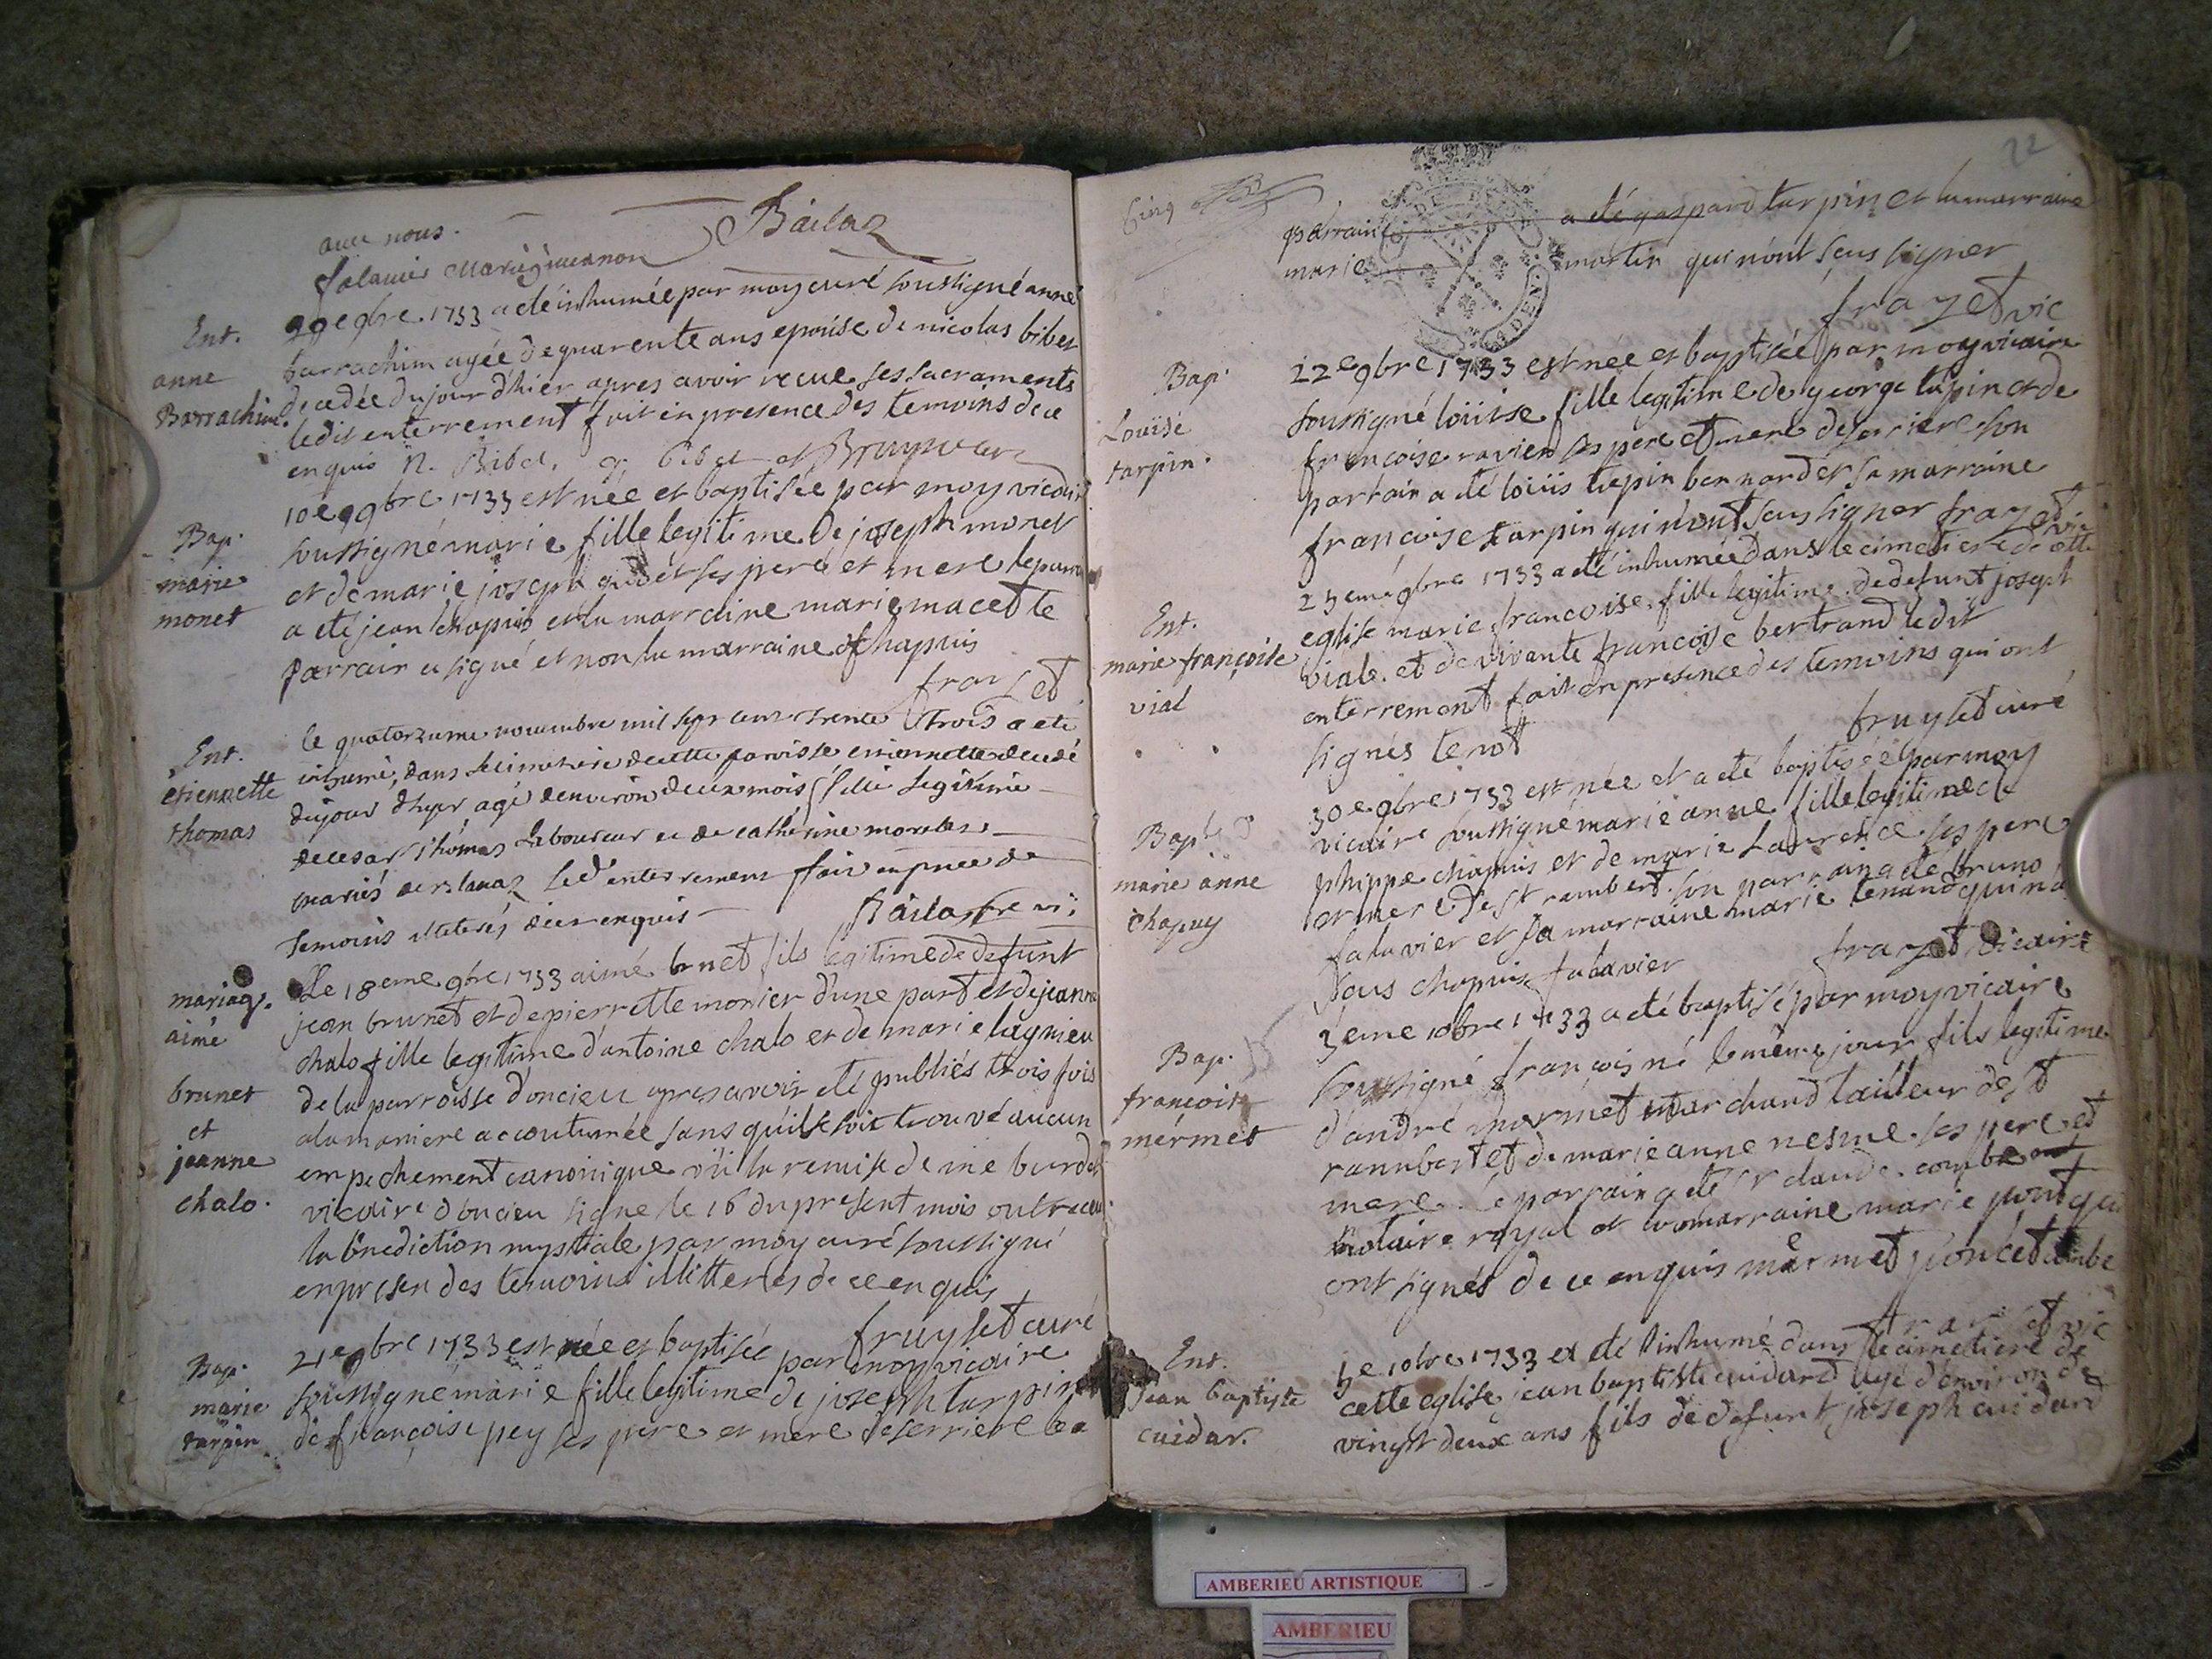 avec nous.
Bailaz
falavier
Ent.
anne
Barrachim.
9bre 1733 a été inhumée par moy curé soussigné anne
barrachim agée de quarente ans epouse de nicolas bibet
decedée du jour d'hier apres avoir recue ses sacraments
ledit enterrement fait en presence des temoins de ce
enquis N. Bibet, g bibet et
Bap.
marie
monet
10e 9bre 1733 est née et baptisée par moy vicaire
soussigné marie fille legitime de joseph monet
et de marie joseph ses pere et mere le parrain
a eté jean chapuis et la marraine marie macet te
parrain a signé et non la marraine chapuis
frayset
Ent.
etiennette
thomas
le quatorzieme novembre mil sept cent trente trois a eté
inhumé, dans le cimetiere de cette paroisse etiennette decedé
du jour d'hyer agé denviron deux mois fille legitime
de cesar thomas laboureur et de catherine
mariés led enterrement fait en pnce de
temoins illiterés de ce enquis Bailaz
mariag.
aimé
brunet
et
jeanne
chalo.
Le 18eme 9bre 1733 aimé brunet fils legitime de defunt
jean brunet et de pierrette monier d'une part et de jeanne
chalo fille legitime d'antoine chalo et de marie lagnieu
de la parroisse d'oncieu apres avoir eté publiés trois fois
a la maniere accoutumée sans qu'il se soit trouvé aucun
empechement canonique vü la remise de me burdet
vicaire d'oncieu signe le 16 du present mois ont recu
la bénediction nuptiale par moy curé soussigné
en presen des temoins illitterés de ce enquis
fruyset curé
Bap.
marie
tarpin.
21e 9bre 1733 est née et baptisée par moy vicaire
soussigné marie fille legitime de joseph turpin
de françoise pey ses pere et mere de serriere le
22
parrain a eté gaspard turpin et la marraine
marie martin qui n'ont scus signer
frayzet vic
Bap.
Louïse
tarpin.
22e 9bre 1733 est née et baptisée par moy vicaire
soussigné loüise fille legitime de george tupin et de
françoise ravier ses pere et mere de serriere son
parrain a eté loüis tupin bernard et sa marraine
françoise tarpin qui n'ont scus signer frayzet vic
Ent.
marie françoise
vial
23eme 9bre 1733 a eté inhumée dans le cimetiere de cette
eglise marie françoise fille legitime de defunt joseph
vial et de vivante françoise bertrand ledit
enterrement fait en presence des temoins qui ont
signés tenot
fruyset curé
Bap.
marie anne
chapuy
30e 9bre 1733 est née et a eté baptisée par moy
vicaire soussigné marie anne fille legitime de
phippe chapuis et de marie Laurence ses pere
et mere de st rambert son parrain a eté bruno
falavier et sa marraine marie tenand qui n'a
scus chapuis falavier
frayzet vicaire
Bap.
françois
mérmet
3eme 10bre 1733 a eté baptisé par moy vicaire
soussigné françois né le même jour fils legitime
d'andré mermet marchand tailleur de st
rambert et de marie anne nesme ses pere et
mere. le parrain a eté sr claude combe
notaire royal et la marraine marie pont qui
ont signés de ce enquis mermet poncet combe
frayzet vic
Ent.
jean baptiste
cuidar.
5e 10bre 1733 a eté inhumé dans le cimetiere de
cette eglise jean baptiste cuidard agé d'environ de
vingt deux ans fils de defunt joseph cuidard
AMBERIEU ARTISTIQUE
AMBERIEU